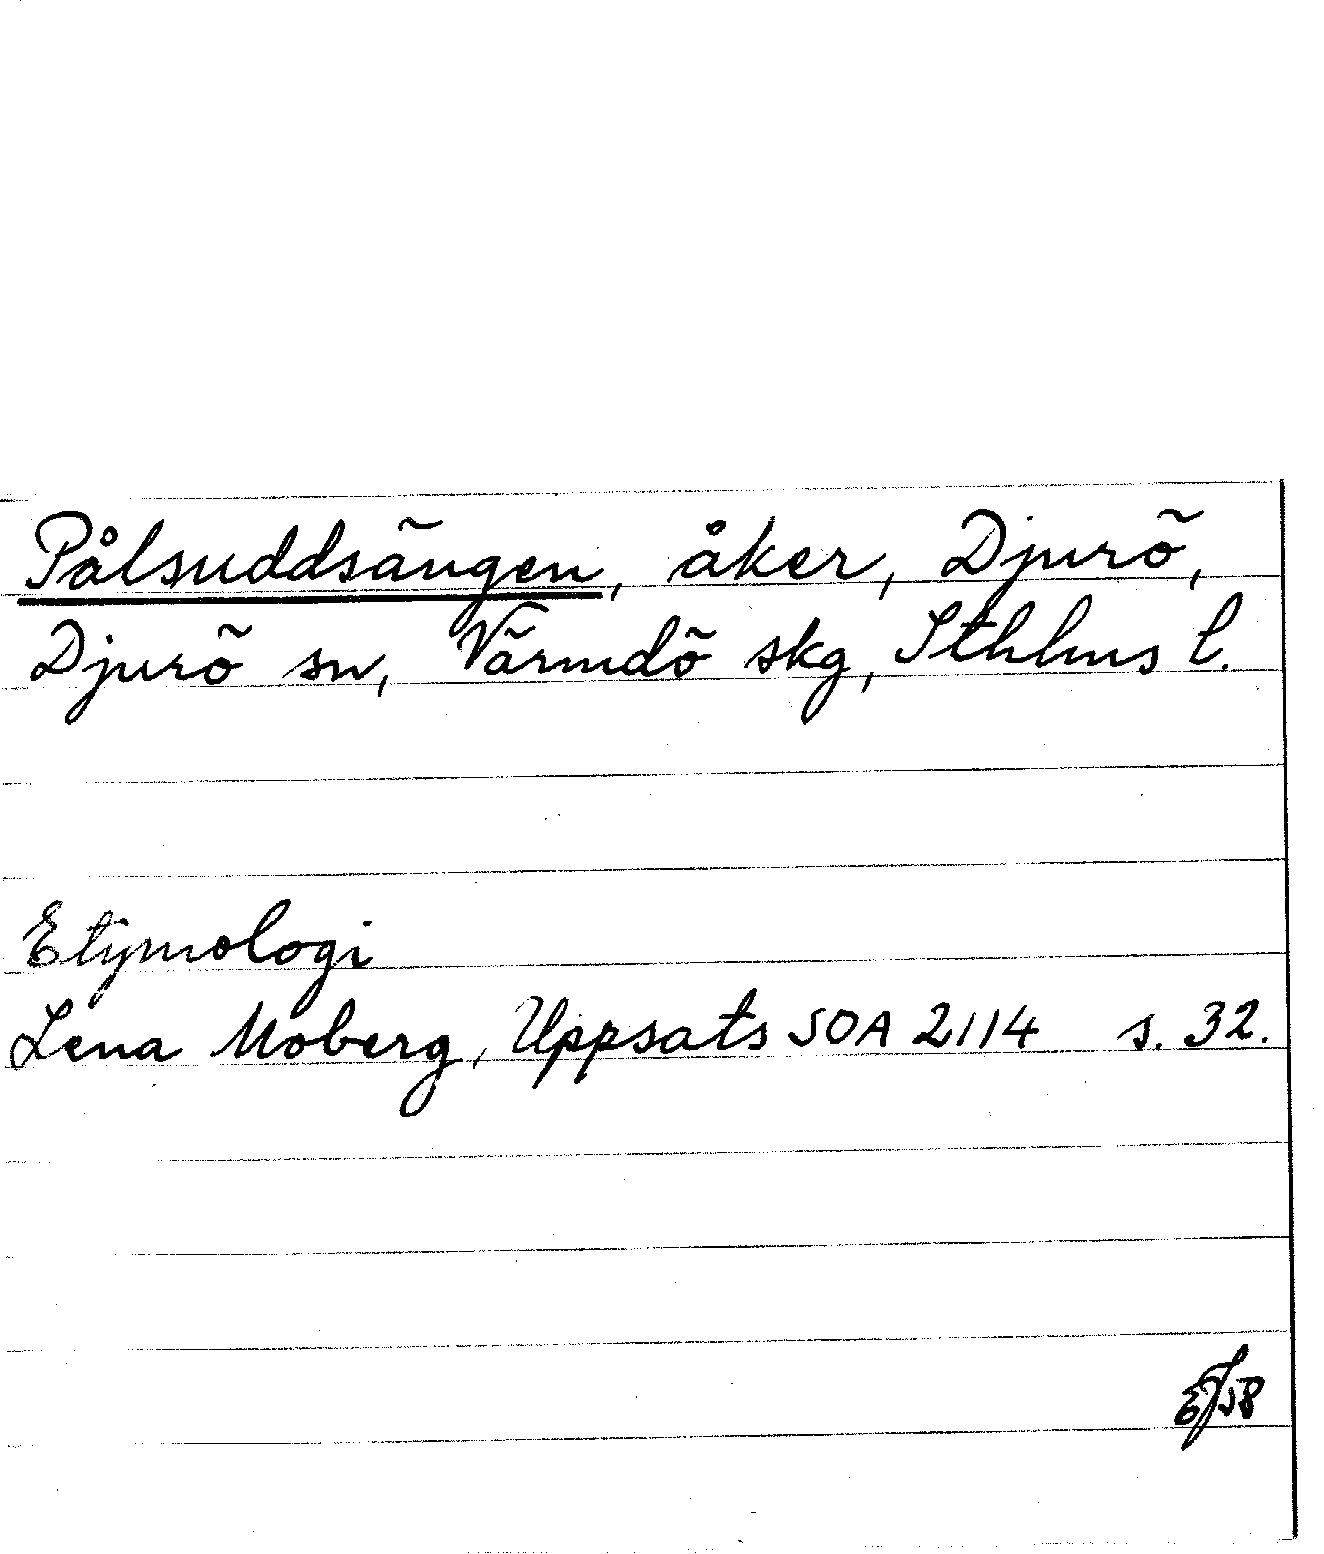 Pålsuddsängen, åker, Djurö,
Djurö sn, Värmdö skg, Sthlms l.
Etymologi
Lena Moberg, Uppsats SOA 2114 s. 32.